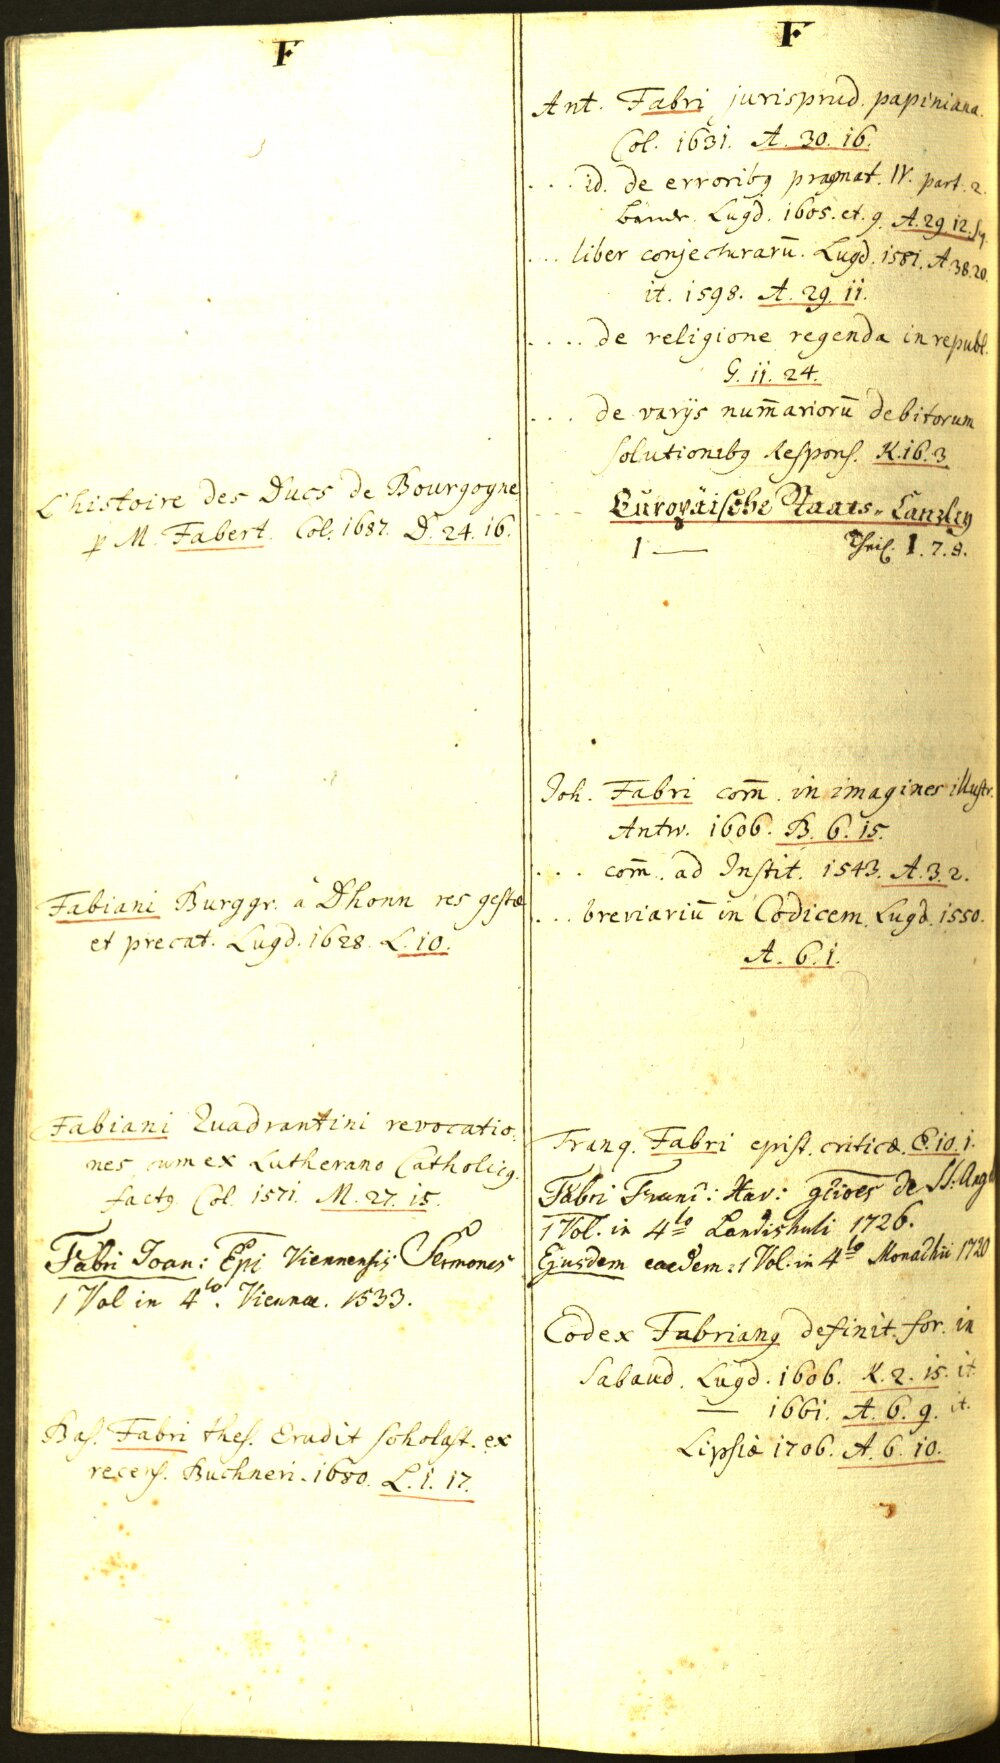 F
L'histoire des Ducs de Bourgogne
p M. Fabert. Col. 1687. D. 24. 16.
Fabiani Burggr. à Dhonn res gestæ
et precat. Lugd. 1628. L. 10.
Fabiani Quadrantini revocatio-
nes cum ex Lutherano Catholicq
factq Col. 1571. M. 27. 15.
Fabri Joan: Epi Viennensis Sermones
1 Vol in 4to. Viennæ. 1533.
Bas. Fabri thes. Erudit scholast. ex
recens. Buchneri. 1680. L. 1. 17.
F
Ant. Fabri jurisprud. papiniana.
Col. 1631. A. 30. 16.
... id. de erroribq pragmat. IV. part. 2.
Lugd. 1605. et. 9. A. 29. 12. sq.
... liber conjecturarū. Lugd. 1581. A. 38. 20.
it. 1598. A. 29. 11.
.... de religione regenda in republ.
G. 11. 24.
... de varijs num̄ariorū debitorum
solutionibq Respons. K. 16. 3.
Europäische Staats-Canzley
1 — Theil. 1. 7. 8.
Joh. Fabri com̄. in imagines illustr.
Antw. 1606. B. 6. 15.
... com̄. ad Instit. 1543. A. 3. 2.
... breviariū in Codicem. Lugd. 1550.
A. 6. 1.
Tranq. Fabri epist. criticæ. E. 10. 1.
Fabri Franc: Xav: de SS. Ang
1 Vol. in 4to Landishuti 1726.
Ejusdem eaedem: 1 Vol. in 4to Monachii 1720
Codex Fabrianq definit. for. in
Sabaud. Lugd. 1606. K. 2. 15. it.
— 1661. A. 6. 9. it.
Lipsiæ 1706. A. 6. 10.